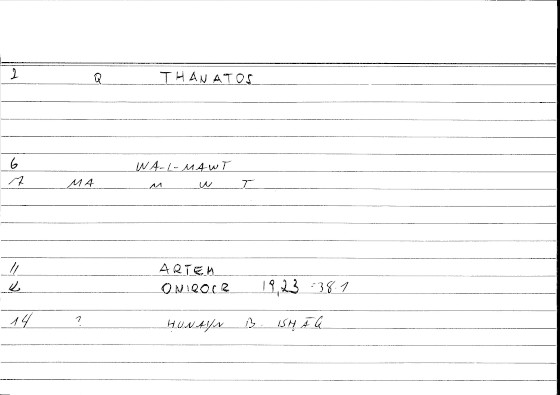 2 Q THANATOS
6 WA-L-MAWT
7 MA M W T
11 ARTEM
12 ONIROCR 19,23 = 38 1
14 ? HUNAYN B. ISHĀQ